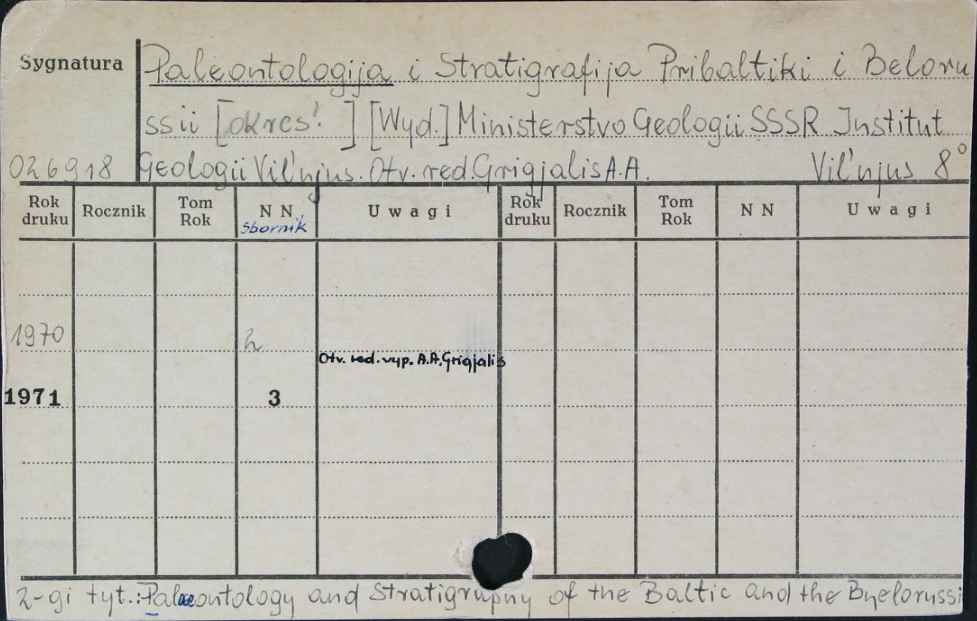 Sygnatura Paleontologija i Stratigrafija Pribaltiki i Beloru
ssii [okres! ] [Wyd.] Ministerstvo Geologii SSSR Institut
026918 Geologii Vil'njus. Otv. red. Grigjalis A.A. Vil'njus 8°
Rok druku Rocznik Tom Rok N N. Uwagi Rok druku Rocznik Tom Rok N N Uwagi
sbornik
1970 2
Otv. red. vyp. A.A. Grigjalis
1971 3
2-gi tyt.: Palaeontology and Stratigraphy of the Baltic and the Byelorussi